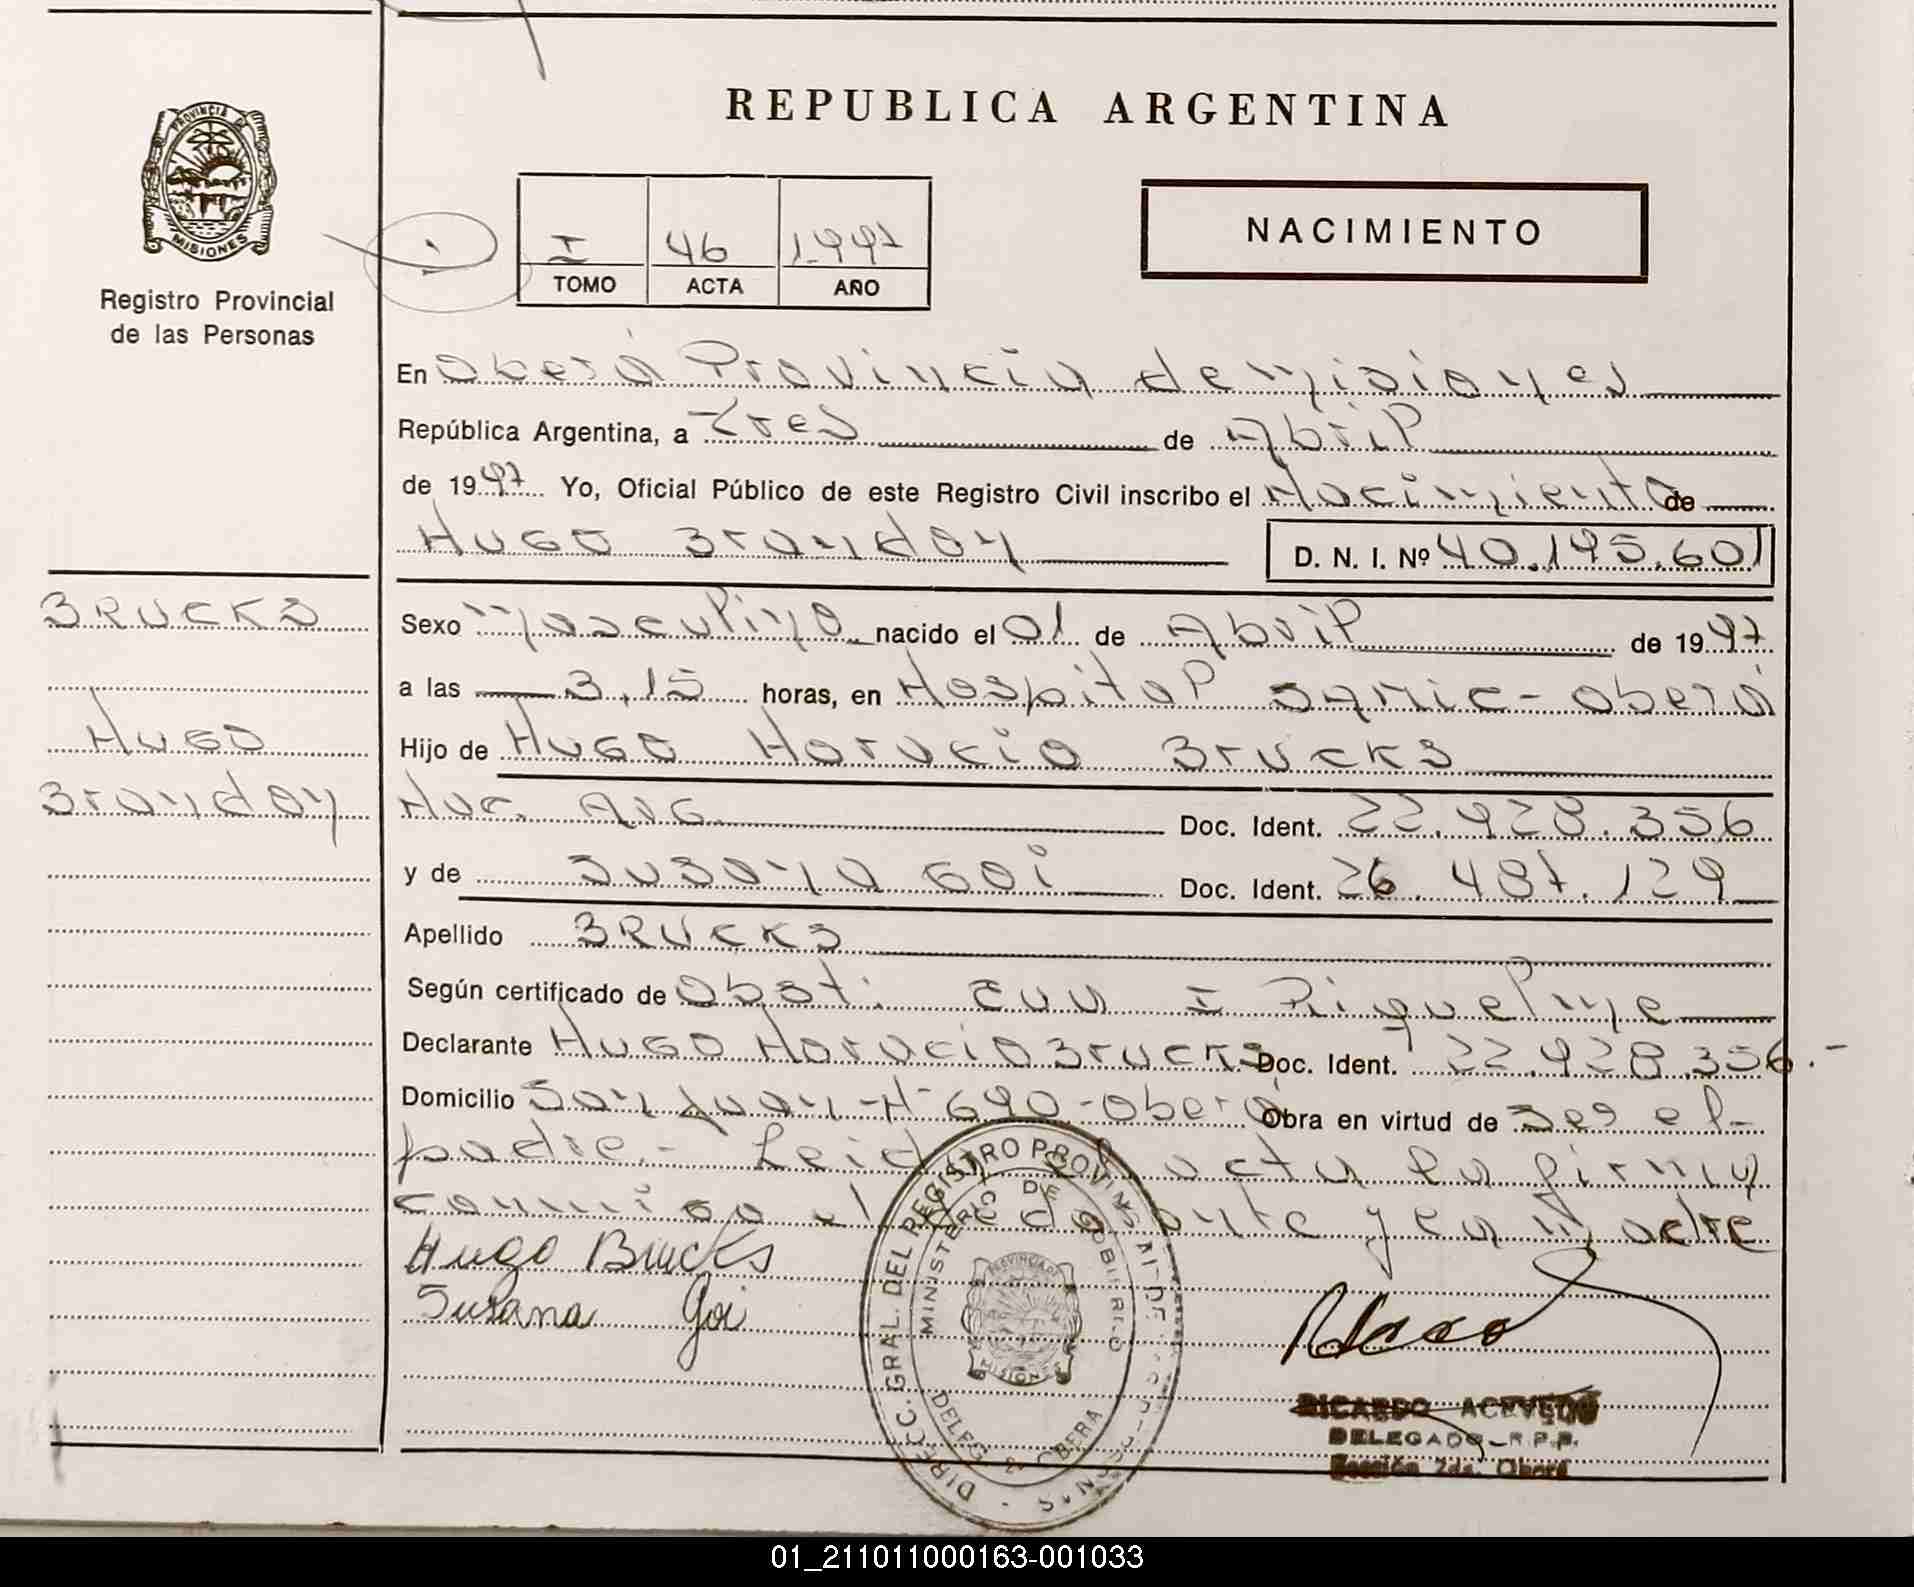 REPUBLICA ARGENTINA
PROVINCIA DE
MISIONES
Registro Provincial
de las Personas
I 46 1997
TOMO ACTA AÑO
NACIMIENTO
En Oberá Provincia de Misiones
República Argentina, a Tres de Abril
de 1997 Yo, Oficial Público de este Registro Civil inscribo el Nacimiento de
HUGO Brandon D. N. I. Nº 40.195.601
BRUCKS
HUGO
Brandon
Sexo Masculino nacido el 01 de Abril de 1997
a las 3,15 horas, en Hospital Samic-Oberá
Hijo de HUGO Horacio Brucks
Nac. ARG. Doc. Ident. 22.928.356
y de Susana Goi Doc. Ident. 26.487.129
Apellido BRUCKS
Según certificado de Obst. I Riquelme
Declarante HUGO Horacio Brucks Doc. Ident. 22.928.356.-
Domicilio San Juan-Nº 690-Oberá Obra en virtud de ser el
padre.- Leida el acta la firma
conmigo el y la madre
Hugo Brucks
Susana Goi
DIRECC. GRAL. DEL REGISTRO PROVINC. DE
MINISTERIO DE GOBIERNO
PROVINCIA DE
MISIONES
DELEG. OBERA
RICARDO ACEVEDO
DELEGADO-R.P.P.
Sección 2da. Oberá
01_211011000163-001033